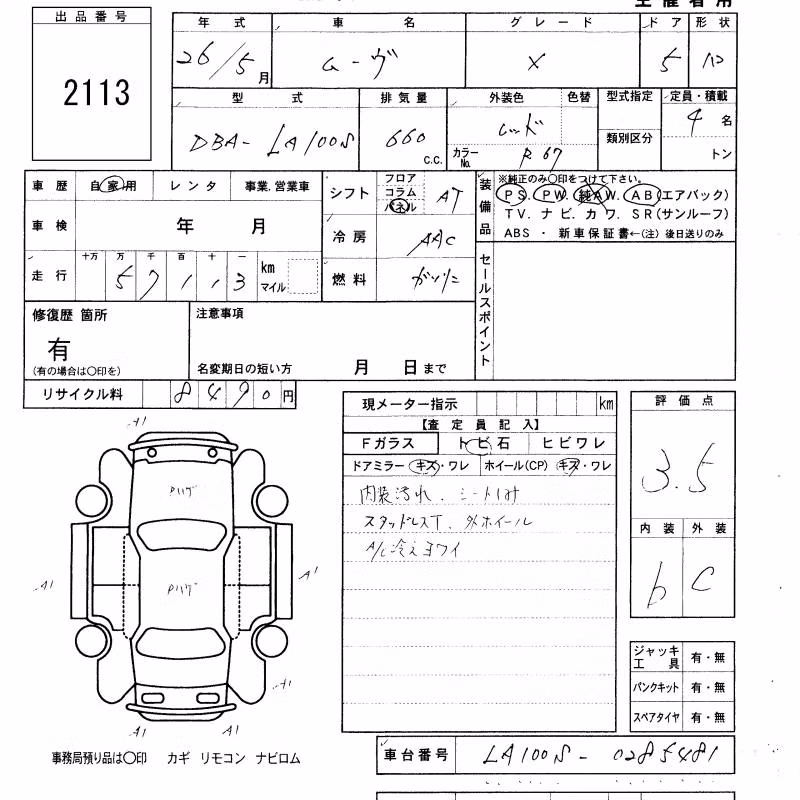 出品番号
2113
年式
26/5月
車名
ムーヴ
グレード
X
ドア
5
形状
型式
DBA-LA100S
排気量
660 c.c.
外装色
レッド
色替
カラーNo.
R67
型式指定
類別区分
定員・積載
4名
トン
車歴
自家用 レンタ 事業、営業車
車検
年 月
走行
十万 万 千 百 十 一
5 7 1 1 3
km
マイル
シフト
フロア
コラム
パネル
AT
冷房
AAC
燃料
ガソリン
装備品
※純正のみ〇印をつけて下さい。
PS. PW. 純AW. AB(エアバック)
TV. ナビ. カワ. SR(サンルーフ)
ABS ・ 新車保証書←(注) 後日送りのみ
セールスポイント
修復歴 箇所
有
(有の場合は〇印を)
注意事項
名変期日の短い方 月 日まで
リサイクル料
8490円
現メーター指示 km
【査定員記入】
Fガラス トビ石 ヒビワレ
ドアミラー キズ・ワレ ホイール(CP) キズ・ワレ
内装汚れ、シートしみ
スタッドレスT、外ホイール
A/C冷えヨワイ
評価点
3.5
内装 外装
b C
ジャッキ工具 有・無
パンクキット 有・無
スペアタイヤ 有・無
A1
Pハゲ
A1
Pハゲ
A1
A1
A1
A1
事務局預り品は〇印 カギ リモコン ナビロム
車台番号
LA100S-0285481